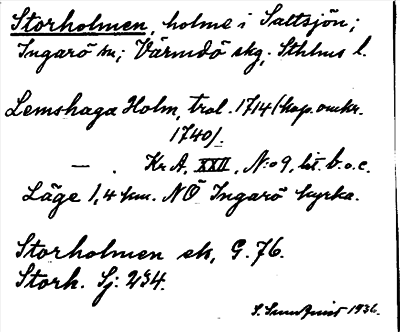 Storholmen, holme i Saltsjön;
Ingarö sn; Värmdö skg. Sthlms l.
Lemshaga Holm, trol. 1714 (kop. omkr.
1740).
— . Kr A, XXII, N:o 9, lit. b. o. c.
Läge 1,4 km. NÖ Ingarö kyrka.
Storholmen ek, G. 76.
Stork. Sj: 234.
1936.